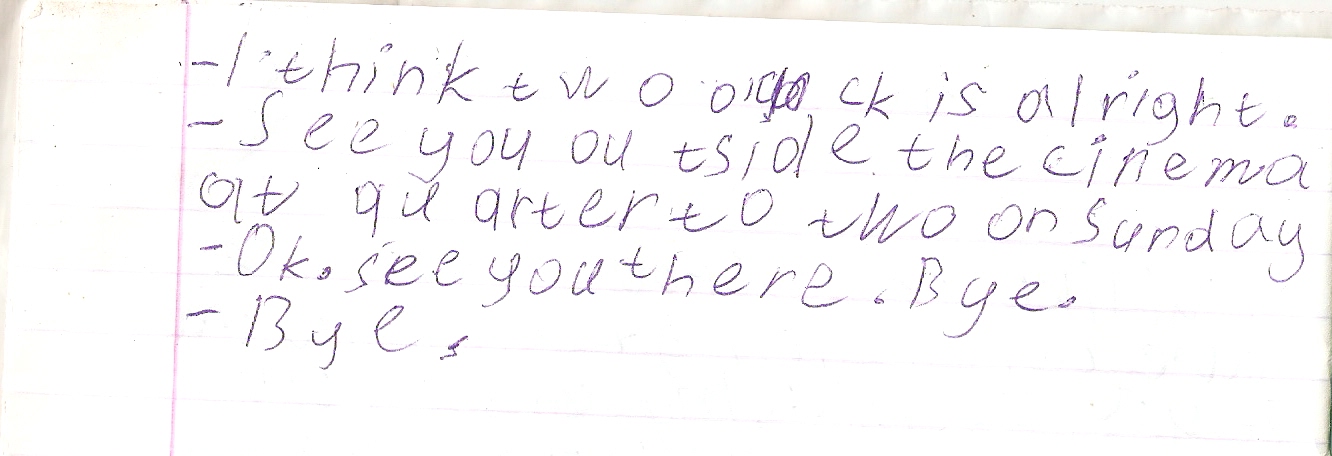 - I think two o'clock is alright.
- See you outside the cinema
at quarter to two on Sunday
- Ok. see you there. Bye.
- Bye.